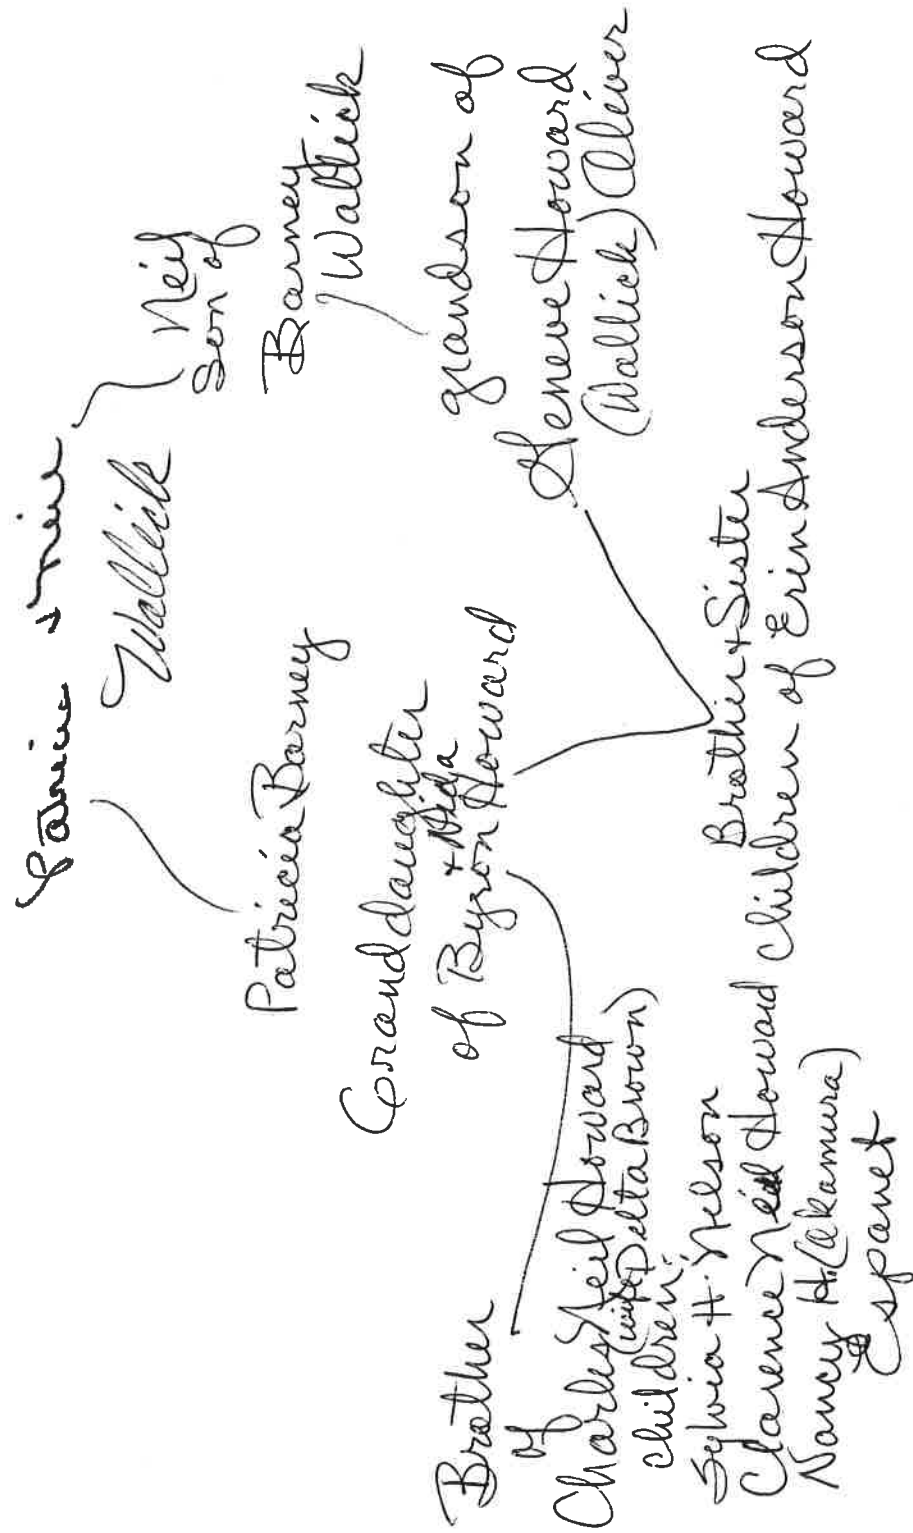 Patricia + Neil
Wallick
Patricia Barney
Granddaughter
+ Nida
of Byron Howard
Neil
Son of
Barney
Wallick
grandson of
Geneve Howard
(Wallick) Oliver
Brother + Sister
children of Erin Anderson Howard
Brother
of
Charles Neil Howard
(wife Delta Brown)
children:
Sylvia H. Nelson
Clarence Neil Howard
Nancy H. (Akamura)
Espanet